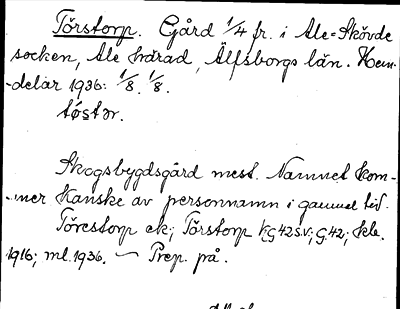 Törstorp. Gård 1/4 fr. i Ale-Skövde
socken, Ale härad, Älfsborgs län. Hem-
-delar 1936: 1/8. 1/8.
tøstər.
Skogsbygdsgård mest. Namnet kom-
-mer kanske av personnamn i gammel tid.
Törestorp ek; Törstorp KG42 s.v; G.42; skb.
1916; ml. 1936. — Prep. på.